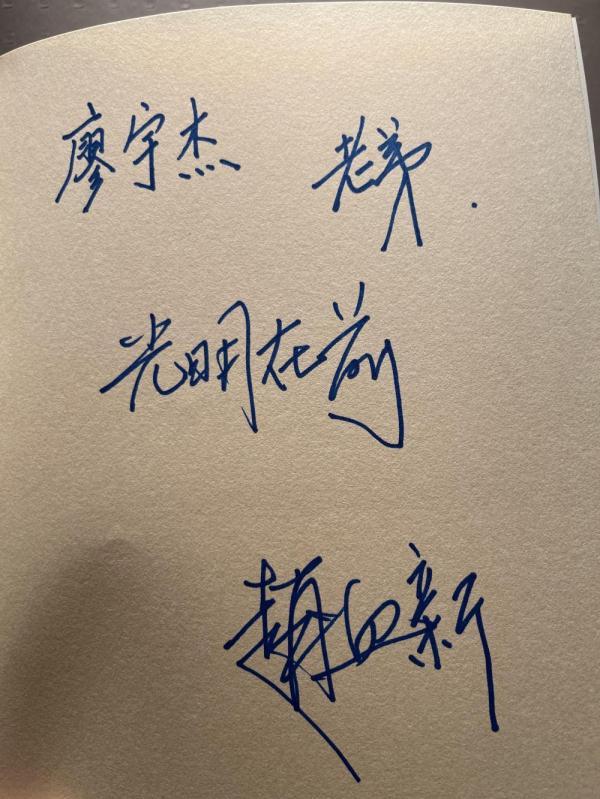 廖宇杰 老弟.
光明在前
赵白新